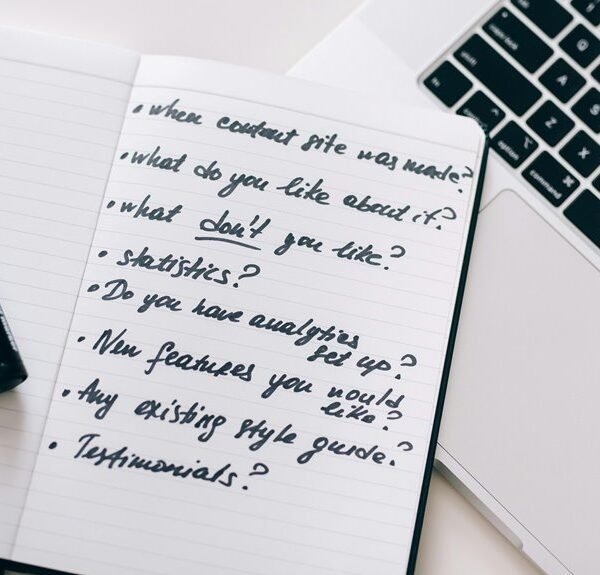 • when content site was made?
• what do you like about it?
• what don't you like?
• statistics?
• Do you have analytics
set up?
• New features you would
like?
• Any existing style guide?
• Testimonials?
Q
A
S
Z
X
caps lock
shift
fn
option
command ⌘